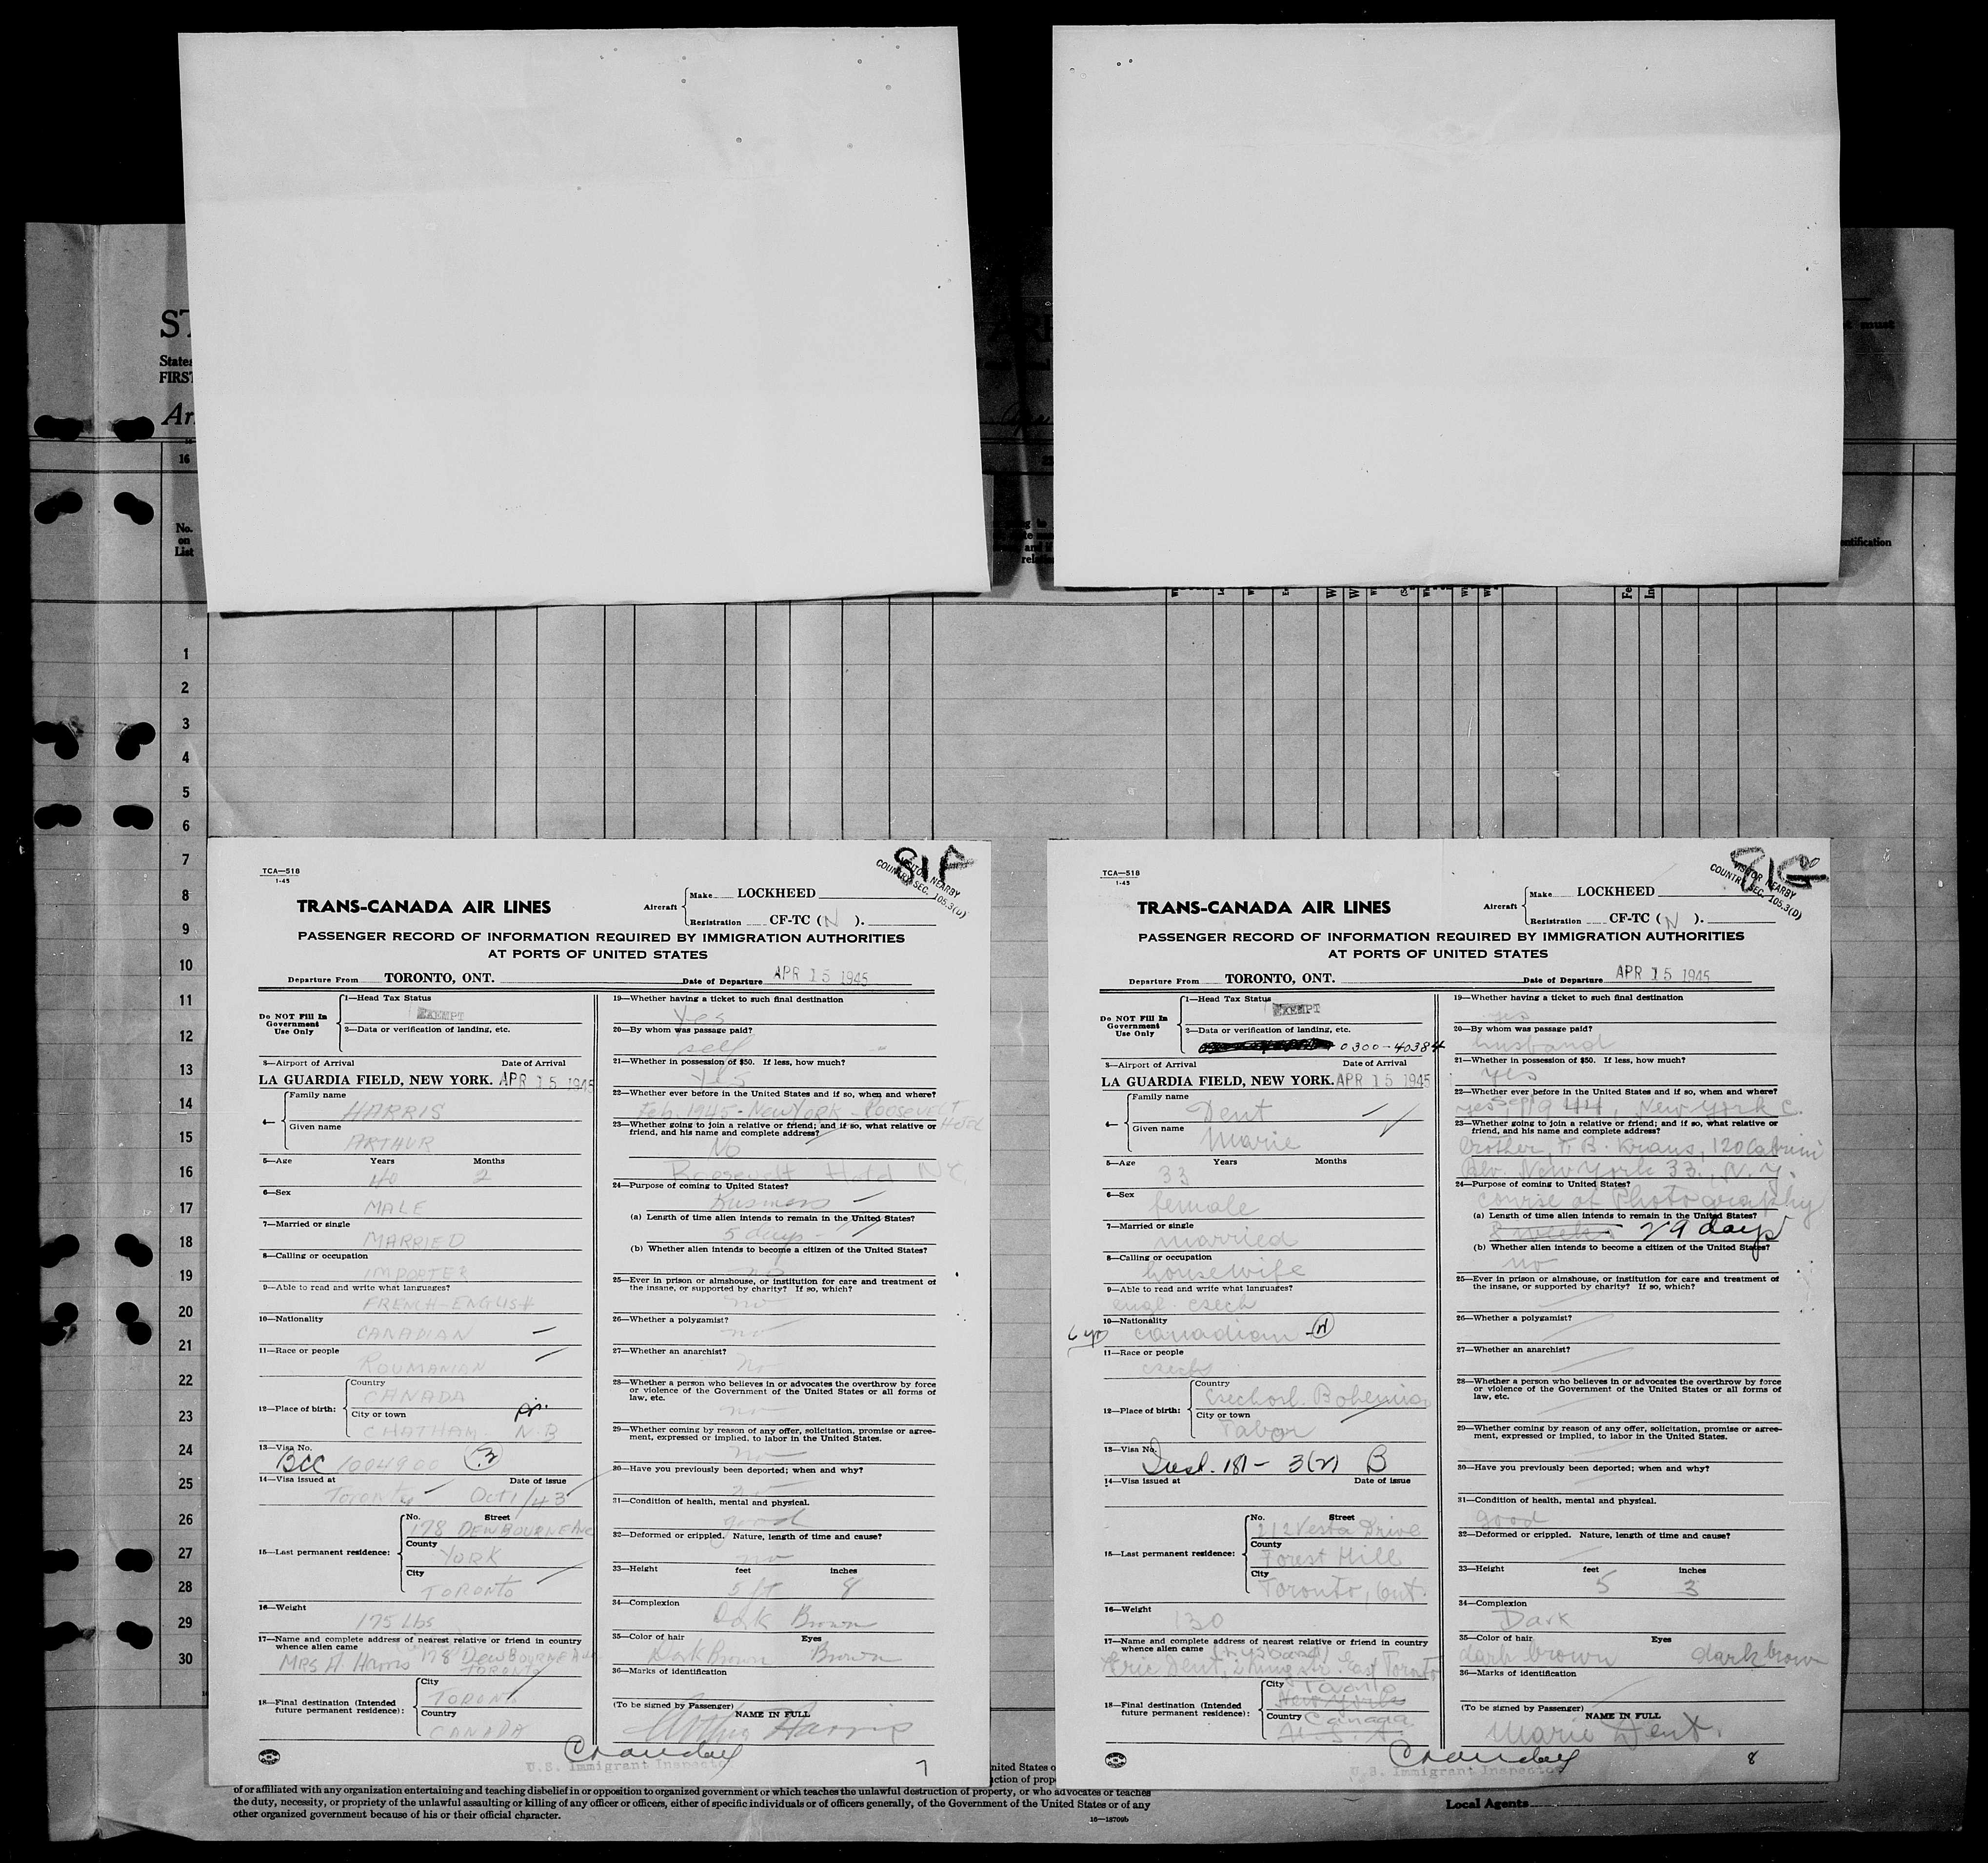 ST
States
FIRST
16
No.
on
List
must
relatio
entification
1
2
3
4
5
6
7
8
9
10
11
12
13
14
15
16
17
18
19
20
21
22
23
24
25
26
27
28
29
30
TCA—518
1-45
81F
VISITOR NEARBY
COUNTRY SEC. 105.3(D)
TRANS-CANADA AIR LINES
Aircraft
Make LOCKHEED
Registration CF-TC ( N ).
PASSENGER RECORD OF INFORMATION REQUIRED BY IMMIGRATION AUTHORITIES
AT PORTS OF UNITED STATES
Departure From TORONTO, ONT. Date of Departure APR 15 1945
Do NOT Fill In
Government
Use Only
1—Head Tax Status
EXEMPT
2—Data or verification of landing, etc.
3—Airport of Arrival Date of Arrival
LA GUARDIA FIELD, NEW YORK. APR 15 1945
4—
Family name
HARRIS
Given name
ARTHUR
5—Age Years Months
40 2
6—Sex
MALE
7—Married or single
MARRIED
8—Calling or occupation
IMPORTER
9—Able to read and write what languages?
FRENCH-ENGLISH
10—Nationality
CANADIAN
11—Race or people
ROUMANIAN
12—Place of birth:
Country
CANADA
City or town
CHATHAM N.B
13—Visa No.
BCC 1004900
14—Visa issued at Date of issue
Toronto Oct 1/43
15—Last permanent residence:
No. Street
178 DEWBOURNE AVE
County
YORK
City
TORONTO
16—Weight
175 Lbs
17—Name and complete address of nearest relative or friend in country
whence alien came
MRS A. Harris 178 DEWBOURNE AVE
TORONTO
18—Final destination (Intended
future permanent residence):
City
TORONTO
Country
CANADA
19—Whether having a ticket to such final destination
Yes
20—By whom was passage paid?
self
21—Whether in possession of $50. If less, how much?
Yes
22—Whether ever before in the United States and if so, when and where?
Feb. 1945 - New York - Roosevelt Hotel
23—Whether going to join a relative or friend; and if so, what relative or
friend, and his name and complete address?
No
Roosevelt Hotel NYC
24—Purpose of coming to United States?
Business
(a) Length of time alien intends to remain in the United States?
5 days
(b) Whether alien intends to become a citizen of the United States?
no
25—Ever in prison or almshouse, or institution for care and treatment of
the insane, or supported by charity? If so, which?
no
26—Whether a polygamist?
no
27—Whether an anarchist?
No
28—Whether a person who believes in or advocates the overthrow by force
or violence of the Government of the United States or all forms of
law, etc.
no
29—Whether coming by reason of any offer, solicitation, promise or agree-
ment, expressed or implied, to labor in the United States.
no
30—Have you previously been deported; when and why?
no
31—Condition of health, mental and physical.
good
32—Deformed or crippled. Nature, length of time and cause?
no
33—Height feet inches
5 ft 8
34—Complexion
Dark Brown
35—Color of hair Eyes
Dark Brown Brown
36—Marks of identification
(To be signed by Passenger)
NAME IN FULL
Arthur Harris
U.S. Immigrant Inspector
7
TCA—518
1-45
81G
VISITOR NEARBY
COUNTRY SEC. 105.3(D)
TRANS-CANADA AIR LINES
Aircraft
Make LOCKHEED
Registration CF-TC ( N ).
PASSENGER RECORD OF INFORMATION REQUIRED BY IMMIGRATION AUTHORITIES
AT PORTS OF UNITED STATES
Departure From TORONTO, ONT. Date of Departure APR 15 1945
Do NOT Fill In
Government
Use Only
1—Head Tax Status
EXEMPT
2—Data or verification of landing, etc.
0300-40384
3—Airport of Arrival Date of Arrival
LA GUARDIA FIELD, NEW YORK. APR 15 1945
4—
Family name
Dent
Given name
Marie
5—Age Years Months
33
6—Sex
female
7—Married or single
married
8—Calling or occupation
housewife
9—Able to read and write what languages?
engl. czech
10—Nationality
6 yrs canadian
11—Race or people
czech
12—Place of birth:
Country
Czechosl. Bohemia
City or town
Tabor
13—Visa No.
181- 3(2) B
14—Visa issued at Date of issue
15—Last permanent residence:
No. Street
212 Vesta Drive
County
Forest Hill
City
Toronto, Ont.
16—Weight
130
17—Name and complete address of nearest relative or friend in country
whence alien came (husband)
Eric Dent, 2 King str. East Toronto
18—Final destination (Intended
future permanent residence):
City Toronto
New York
Country Canada
U.S.A.
19—Whether having a ticket to such final destination
yes
20—By whom was passage paid?
husband
21—Whether in possession of $50. If less, how much?
yes
22—Whether ever before in the United States and if so, when and where?
yes, Sep 1944, New York C.
23—Whether going to join a relative or friend; and if so, what relative or
friend, and his name and complete address?
brother, F. B. Kraus, 120 Cabrini
Blv. New York 33., N.Y.
24—Purpose of coming to United States?
course of Photography
(a) Length of time alien intends to remain in the United States?
8 weeks 29 days
(b) Whether alien intends to become a citizen of the United States?
no
25—Ever in prison or almshouse, or institution for care and treatment of
the insane, or supported by charity? If so, which?
26—Whether a polygamist?
27—Whether an anarchist?
28—Whether a person who believes in or advocates the overthrow by force
or violence of the Government of the United States or all forms of
law, etc.
29—Whether coming by reason of any offer, solicitation, promise or agree-
ment, expressed or implied, to labor in the United States.
30—Have you previously been deported; when and why?
31—Condition of health, mental and physical.
good
32—Deformed or crippled. Nature, length of time and cause?
33—Height feet inches
5 3
34—Complexion
Dark
35—Color of hair Eyes
dark brown dark brown
36—Marks of identification
(To be signed by Passenger)
NAME IN FULL
Marie Dent.
U.S. Immigrant Inspector
8
nited States o
ction of prope
of or affiliated with any organization entertaining and teaching disbelief in or opposition to organized government or which teaches the unlawful destruction of property, or who advocates or teaches
the duty, necessity, or propriety of the unlawful assaulting or killing of any officer or officers, either of specific individuals or of officers generally, of the Government of the United States or of any
other organized government because of his or their official character.
16—18709b
Local Agents